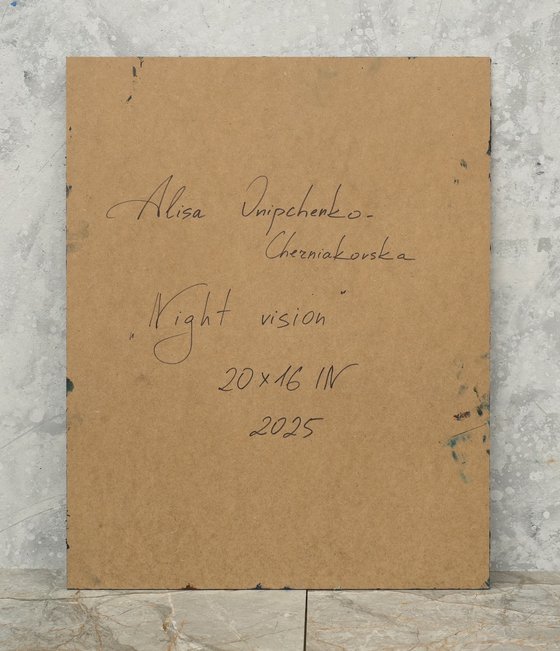 Alisa Onipchenko-
Cherniakovska
„Night vision"
20x16 IN
2025